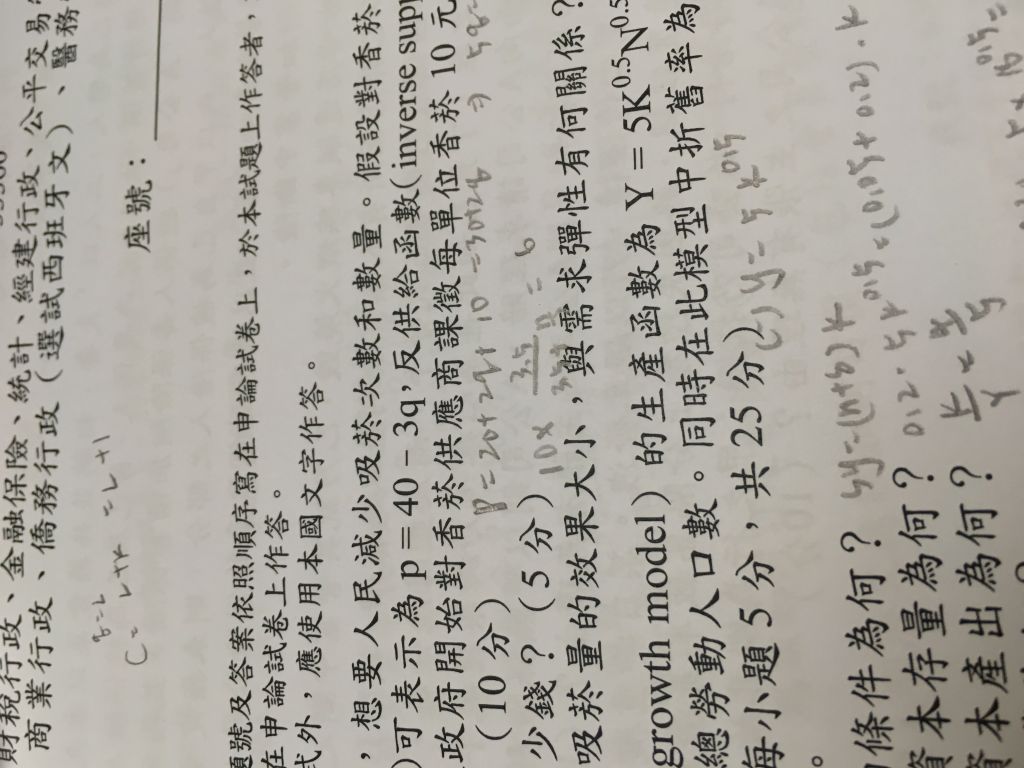 財稅行政、金融保險、統計、經建行政、公平交易
商業行政、僑務行政(選試西班牙文)、醫務
座號:
題號及答案依照順序寫在申論試卷上,於本試題上作答者,
在申論試卷上作答。
式外,應使用本國文字作答。
,想要人民減少吸菸次數和數量。假設對香菸
)可表示為 p = 40 – 3q,反供給函數(inverse supp
政府開始對香菸供應商課徵每單位香菸 10 元
(10 分)
少錢?(5 分)
吸菸量的效果大小,與需求彈性有何關係?
growth model)的生產函數為 Y = 5K^0.5N^0.5
總勞動人口數。同時在此模型中折舊率為
每小題 5 分,共 25 分)
y = 5 k^0.5
條件為何? sy = (n+δ) k
資本存量為何? 0.2 · 5k^0.5 = (0.05 + 0.2) · k
資本產出為何?